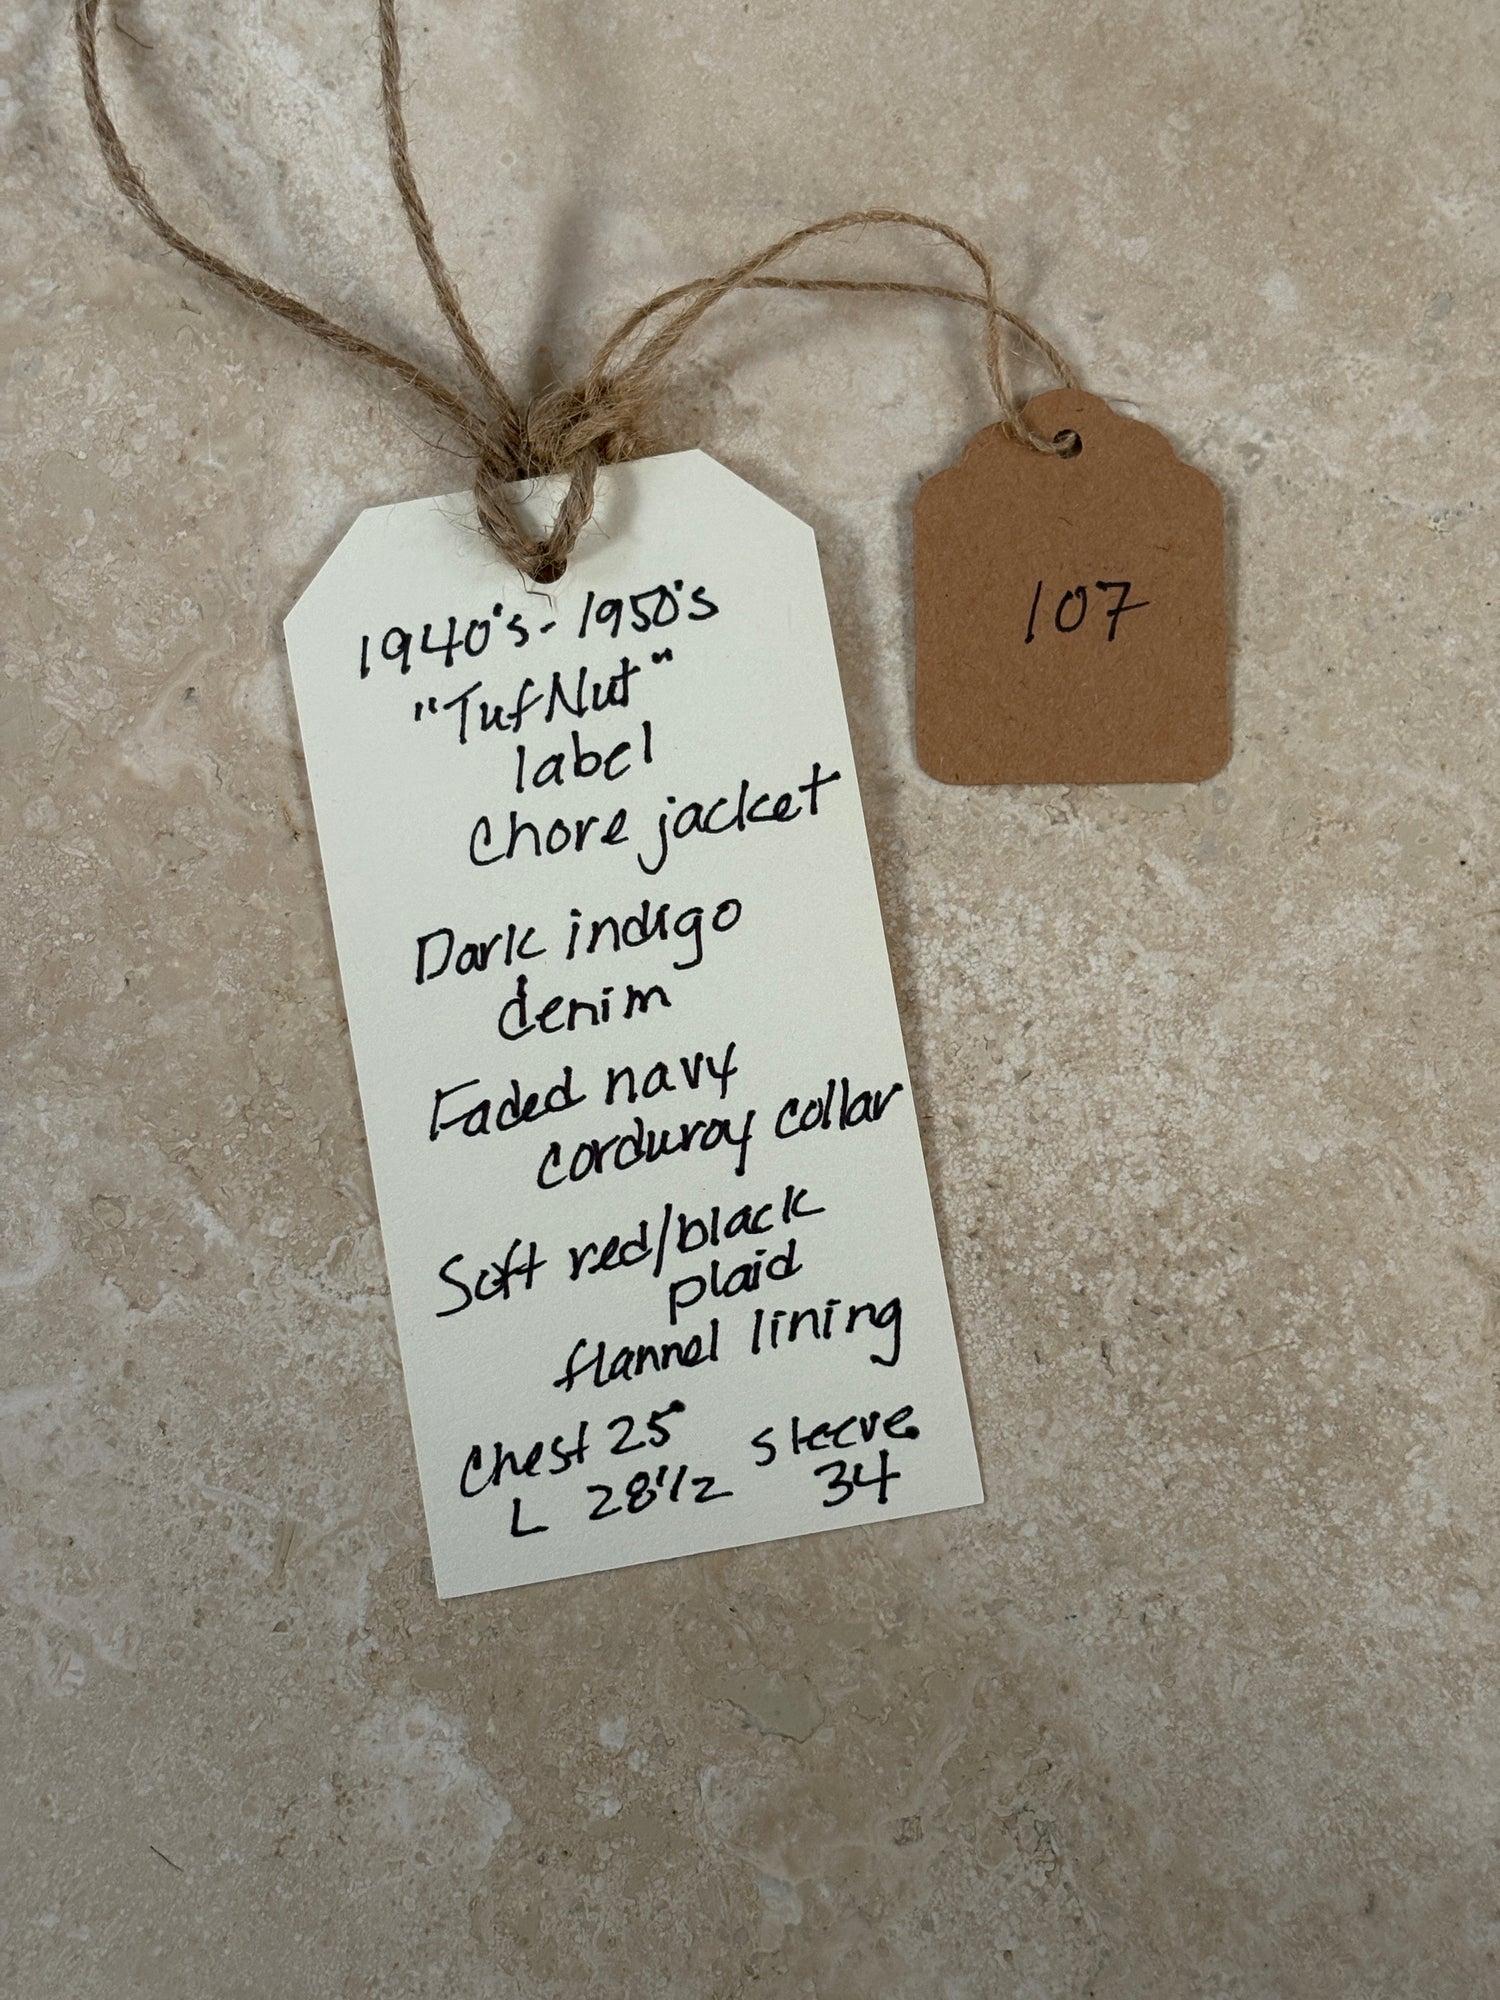 1940's - 1950's
"TufNut"
label
chore jacket
Dark indigo
denim
Faded navy
corduroy collar
Soft red/black
plaid
flannel lining
Chest 25" sleeve
L 28 1/2 34
107